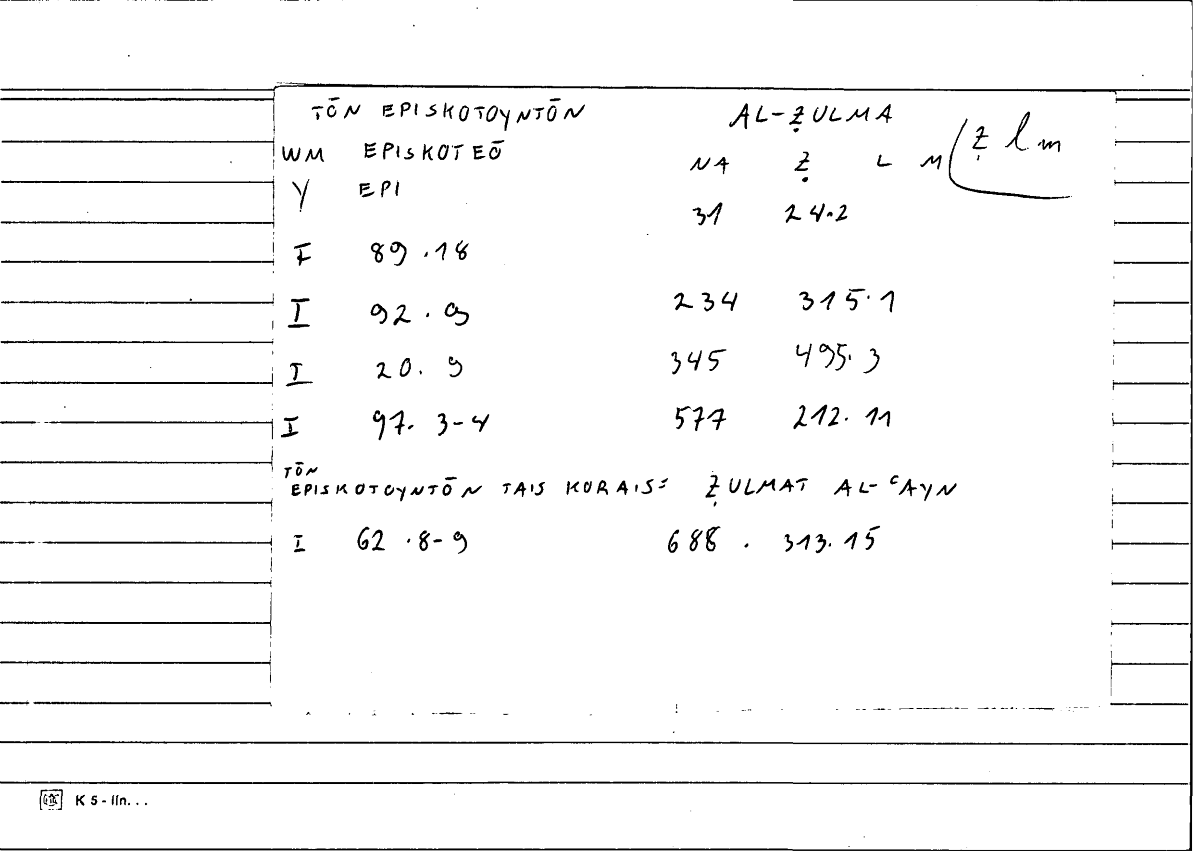 TŌN EPISKOTOYNTŌN AL-ẒULMA
ẓ l m
WM EPISKOTEŌ NA Ẓ L M
Y EPI 31 24.2
I 89.18
I 92.9 234 315.1
I 20.9 345 495.3
I 97.3-4 577 212.11
TŌN
EPISKOTOYNTŌN TAIS KORAIS: ẒULMAT AL-ʿAYN
I 62.8-9 688. 313.15
K 5 - lln...